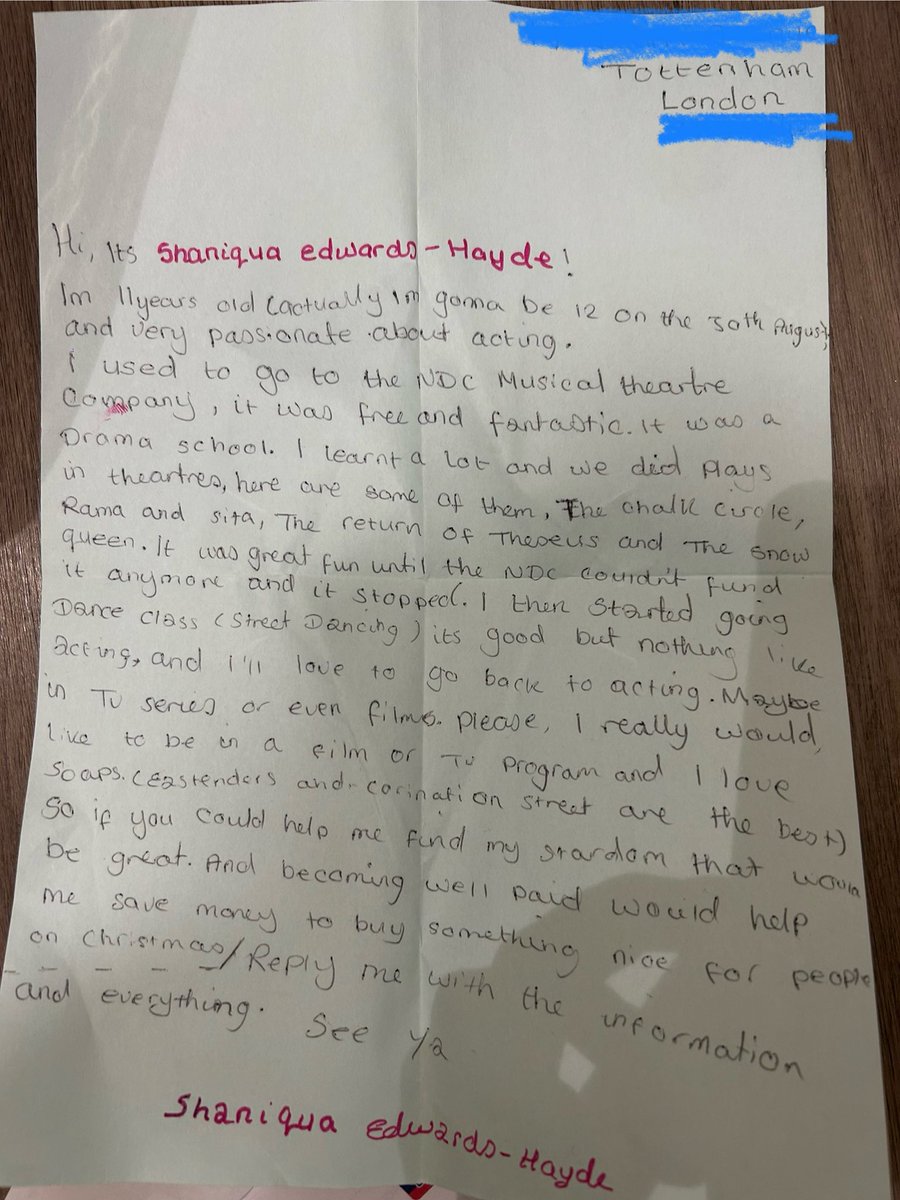 Tottenham
London
Hi, Its Shaniqua edwards-Hayde!
Im 11years old (actually im gonna be 12 on the 30th August)
and very passionate about acting.
I used to go to the NDC Musical theartre
Company, it was free and fantastic. It was a
Drama school. I learnt a lot and we did plays
in theartres, here are some of them, The chalk circle,
Rama and sita, The return of Theseus and The snow
queen. It was great fun until the NDC couldn't fund
it anymore and it stopped. I then started going
Dance class (Street Dancing) its good but nothing like
acting, and I'll love to go back to acting. Maybe
in Tv series or even films. please, I really would,
like to be in a film or Tv program and I love
Soaps. (Eastenders and corination street are the best)
So if you could help me find my stardom that would
be great. And becoming well paid would help
me save money to buy something nice for people
on christmas/Reply me with the information
and everything. See Ya
Shaniqua Edwards-Hayde